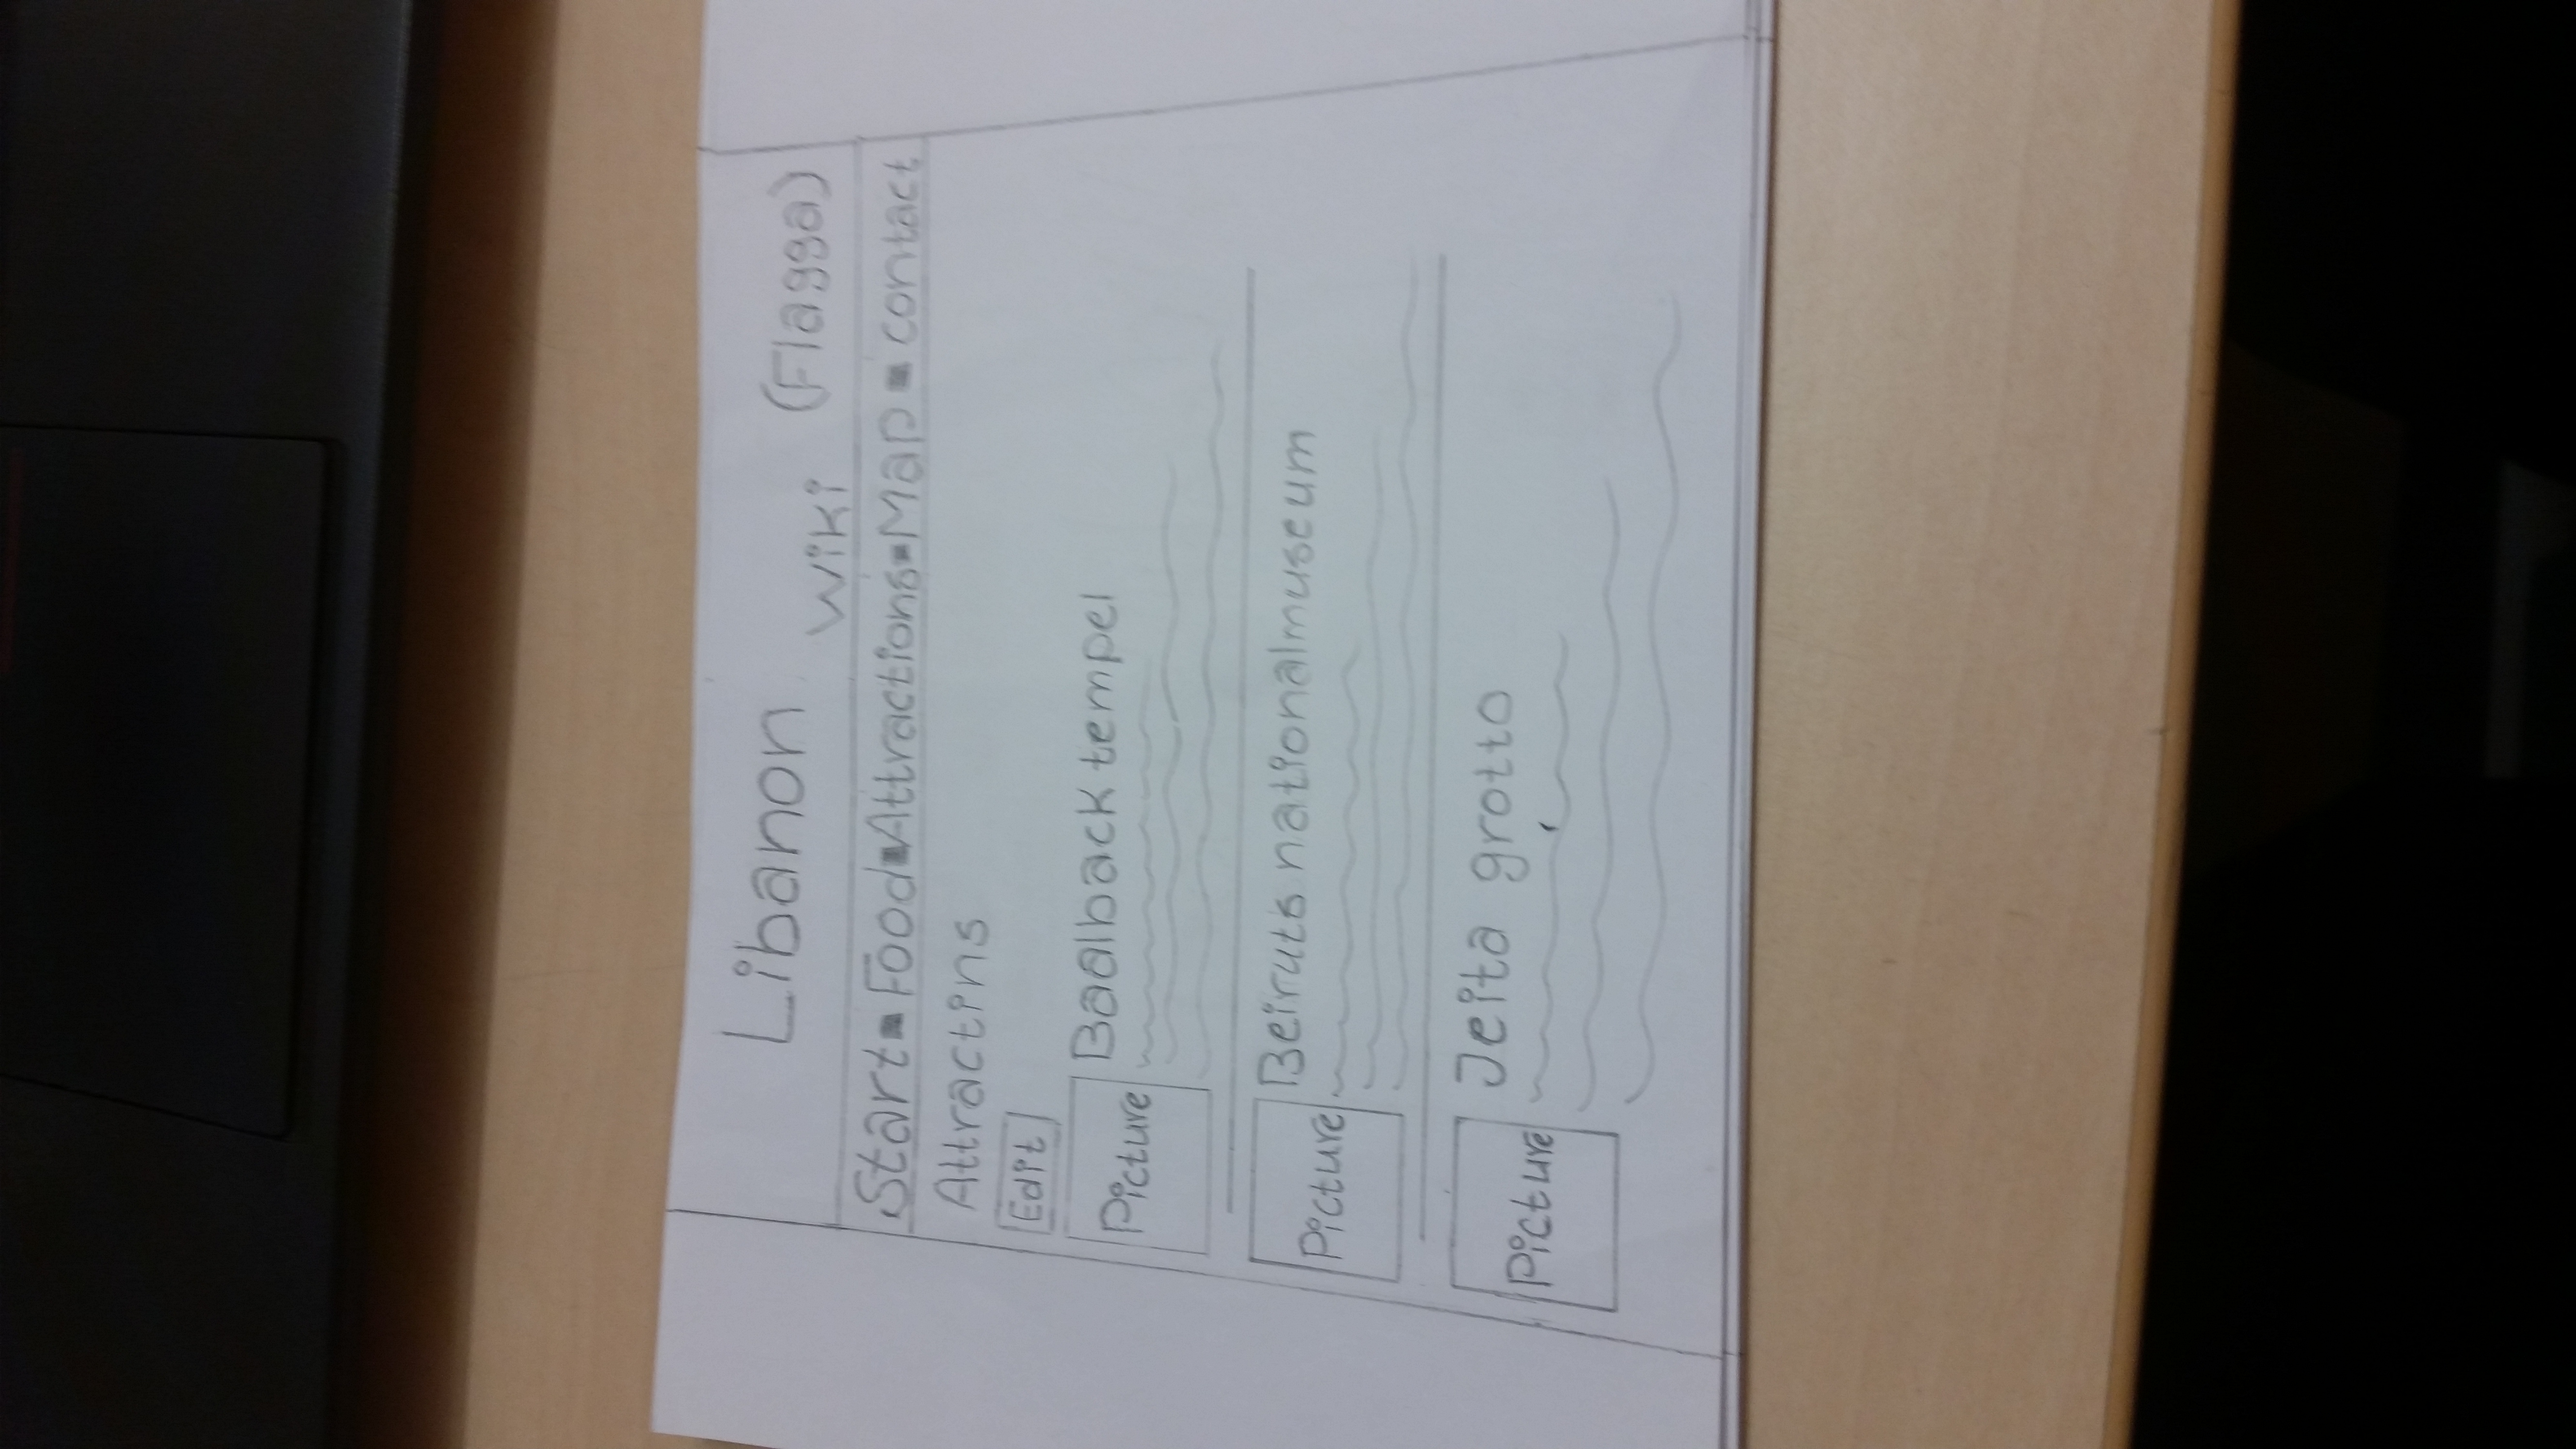 Libanon
Wiki (Flagga)
Start▪Food▪Attractions▪Map▪contact
Attractins
Edit
Picture Baalback tempel
Picture Beiruts nationalmuseum
Picture Jeita grotto